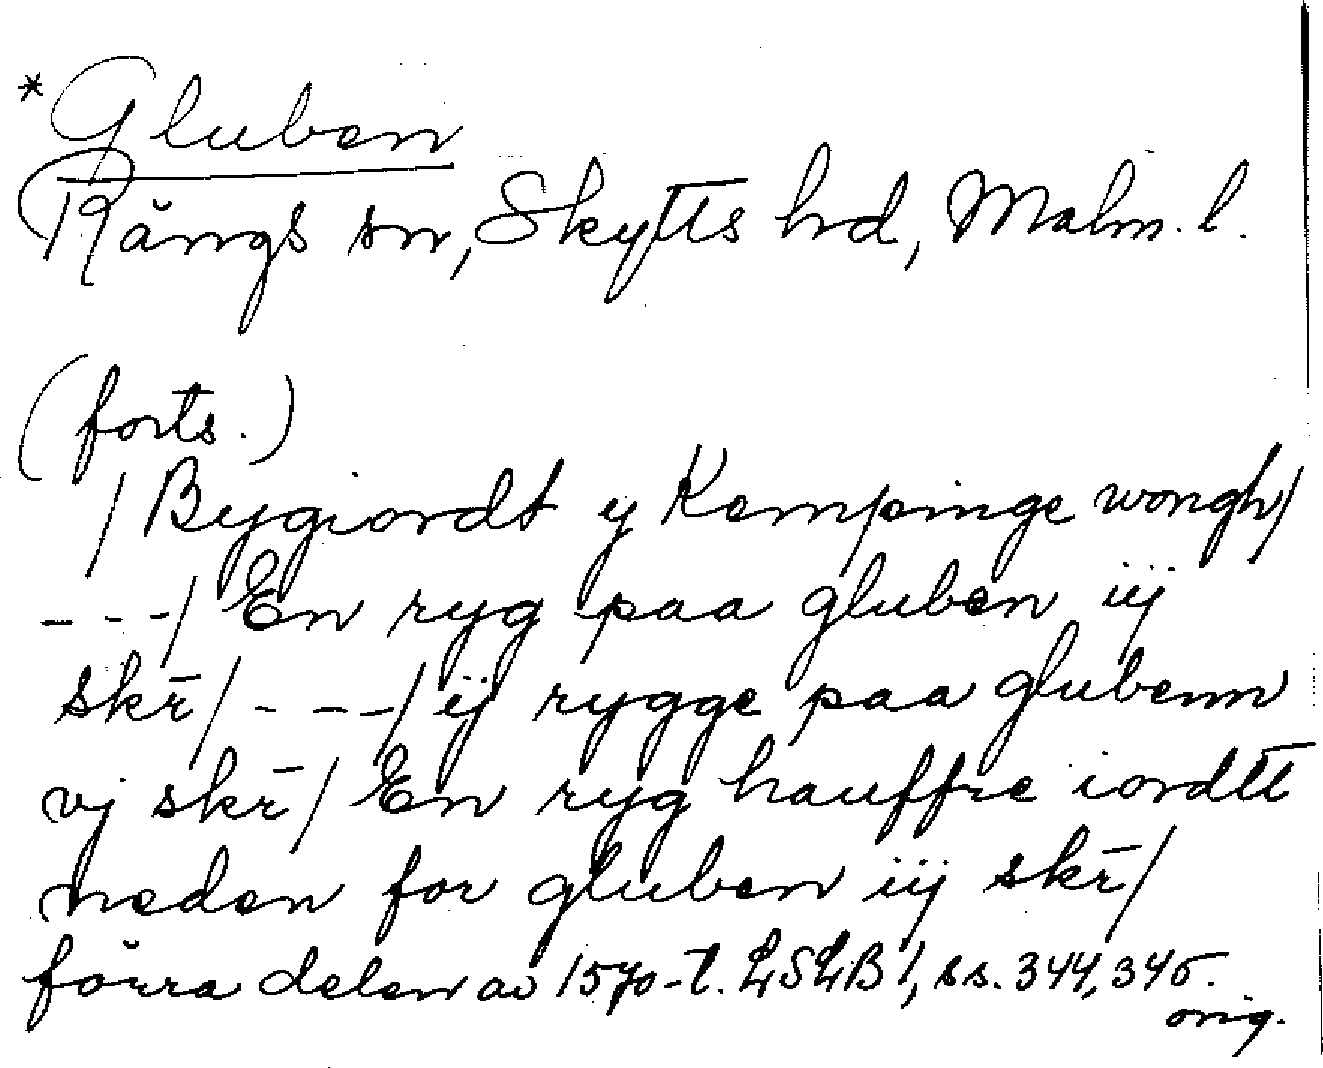 *Gluben
Rängs sn, Skytts hd, Malm. l.
(forts.)
/Bygiordt y Kempinge wongh/
---/ En ryg paa gluben iij
skr̄/---/ ij rygge paa glubenn
vj skr̄/ En ryg hauffre iordtt
neden for gluben iij skr̄/
förra delen av 1570-t. LSLB 1, ss. 344, 345.
orig.